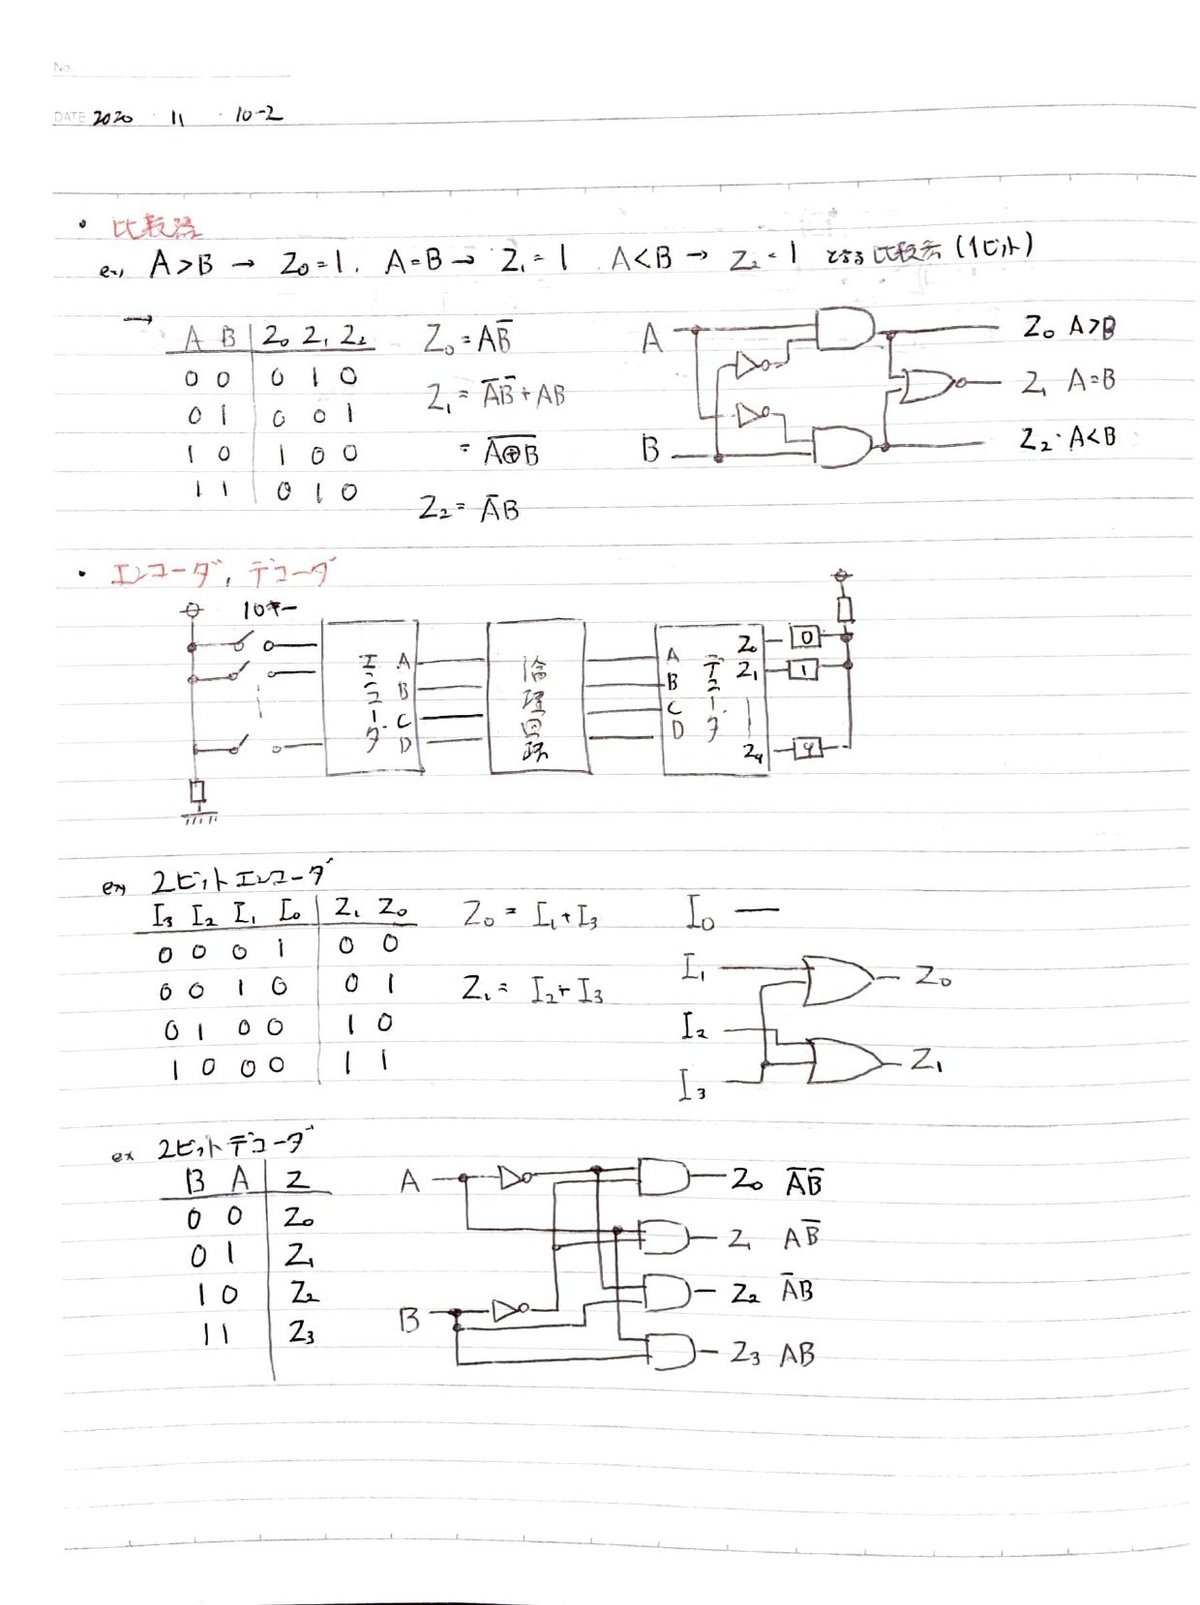 No.
DATE 2020 ・ 11 ・ 10-2
・ 比較器
ex, A>B → Z₀=1. A=B → Z₁=1 A<B → Z₂=1 となる比較器(1ビット)
→
A B Z₀ Z₁ Z₂
0 0 0 1 0
0 1 0 0 1
1 0 1 0 0
1 1 0 1 0
Z₀ = AB̅
Z₁ = A̅B̅ + AB
= A̅⊕̅B̅
Z₂ = A̅B
A
B
Z₀ A>B
Z₁ A=B
Z₂ A<B
・ エンコーダ, デコーダ
10キー
エンコーダ
A
B
C
D
論理回路
A
B
C
D
デコーダ
Z₀ 0
Z₁ 1
Z₉ 9
ex 2ビットエンコーダ
I₃ I₂ I₁ I₀ Z₁ Z₀
0 0 0 1 0 0
0 0 1 0 0 1
0 1 0 0 1 0
1 0 0 0 1 1
Z₀ = I₁+I₃
Z₁ = I₂+I₃
I₀
I₁
I₂
I₃
Z₀
Z₁
ex 2ビットデコーダ
B A Z
0 0 Z₀
0 1 Z₁
1 0 Z₂
1 1 Z₃
A
B
Z₀ A̅B̅
Z₁ AB̅
Z₂ A̅B
Z₃ AB